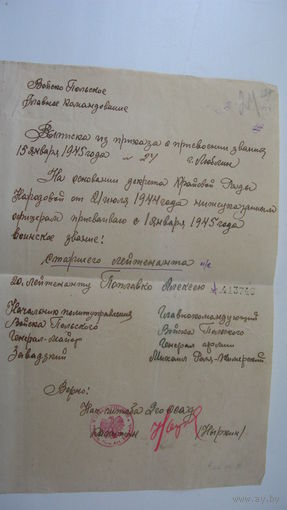 Войско Польское
Главное Командование
Выписка из приказа о присвоении звания
15 января 1945 года № 24 г. Люблин
На основании декрета Крайовой Рады
Народовой от 21 июля 1944 года нижеуказанным
офицерам присваиваю с 1 января 1945 года
воинское звание:
Старшего лейтенанта
20. Лейтенанту Поплавко Алексею
Начальник политуправления
Войска Польского
Генерал-майор
Завадский
Главнокомандующий
Войска Польского
Генерал армии
Михаил Роля-Жимерский
Верно:
Нач. 2го
капитан (Ныркин)
www.ay.by